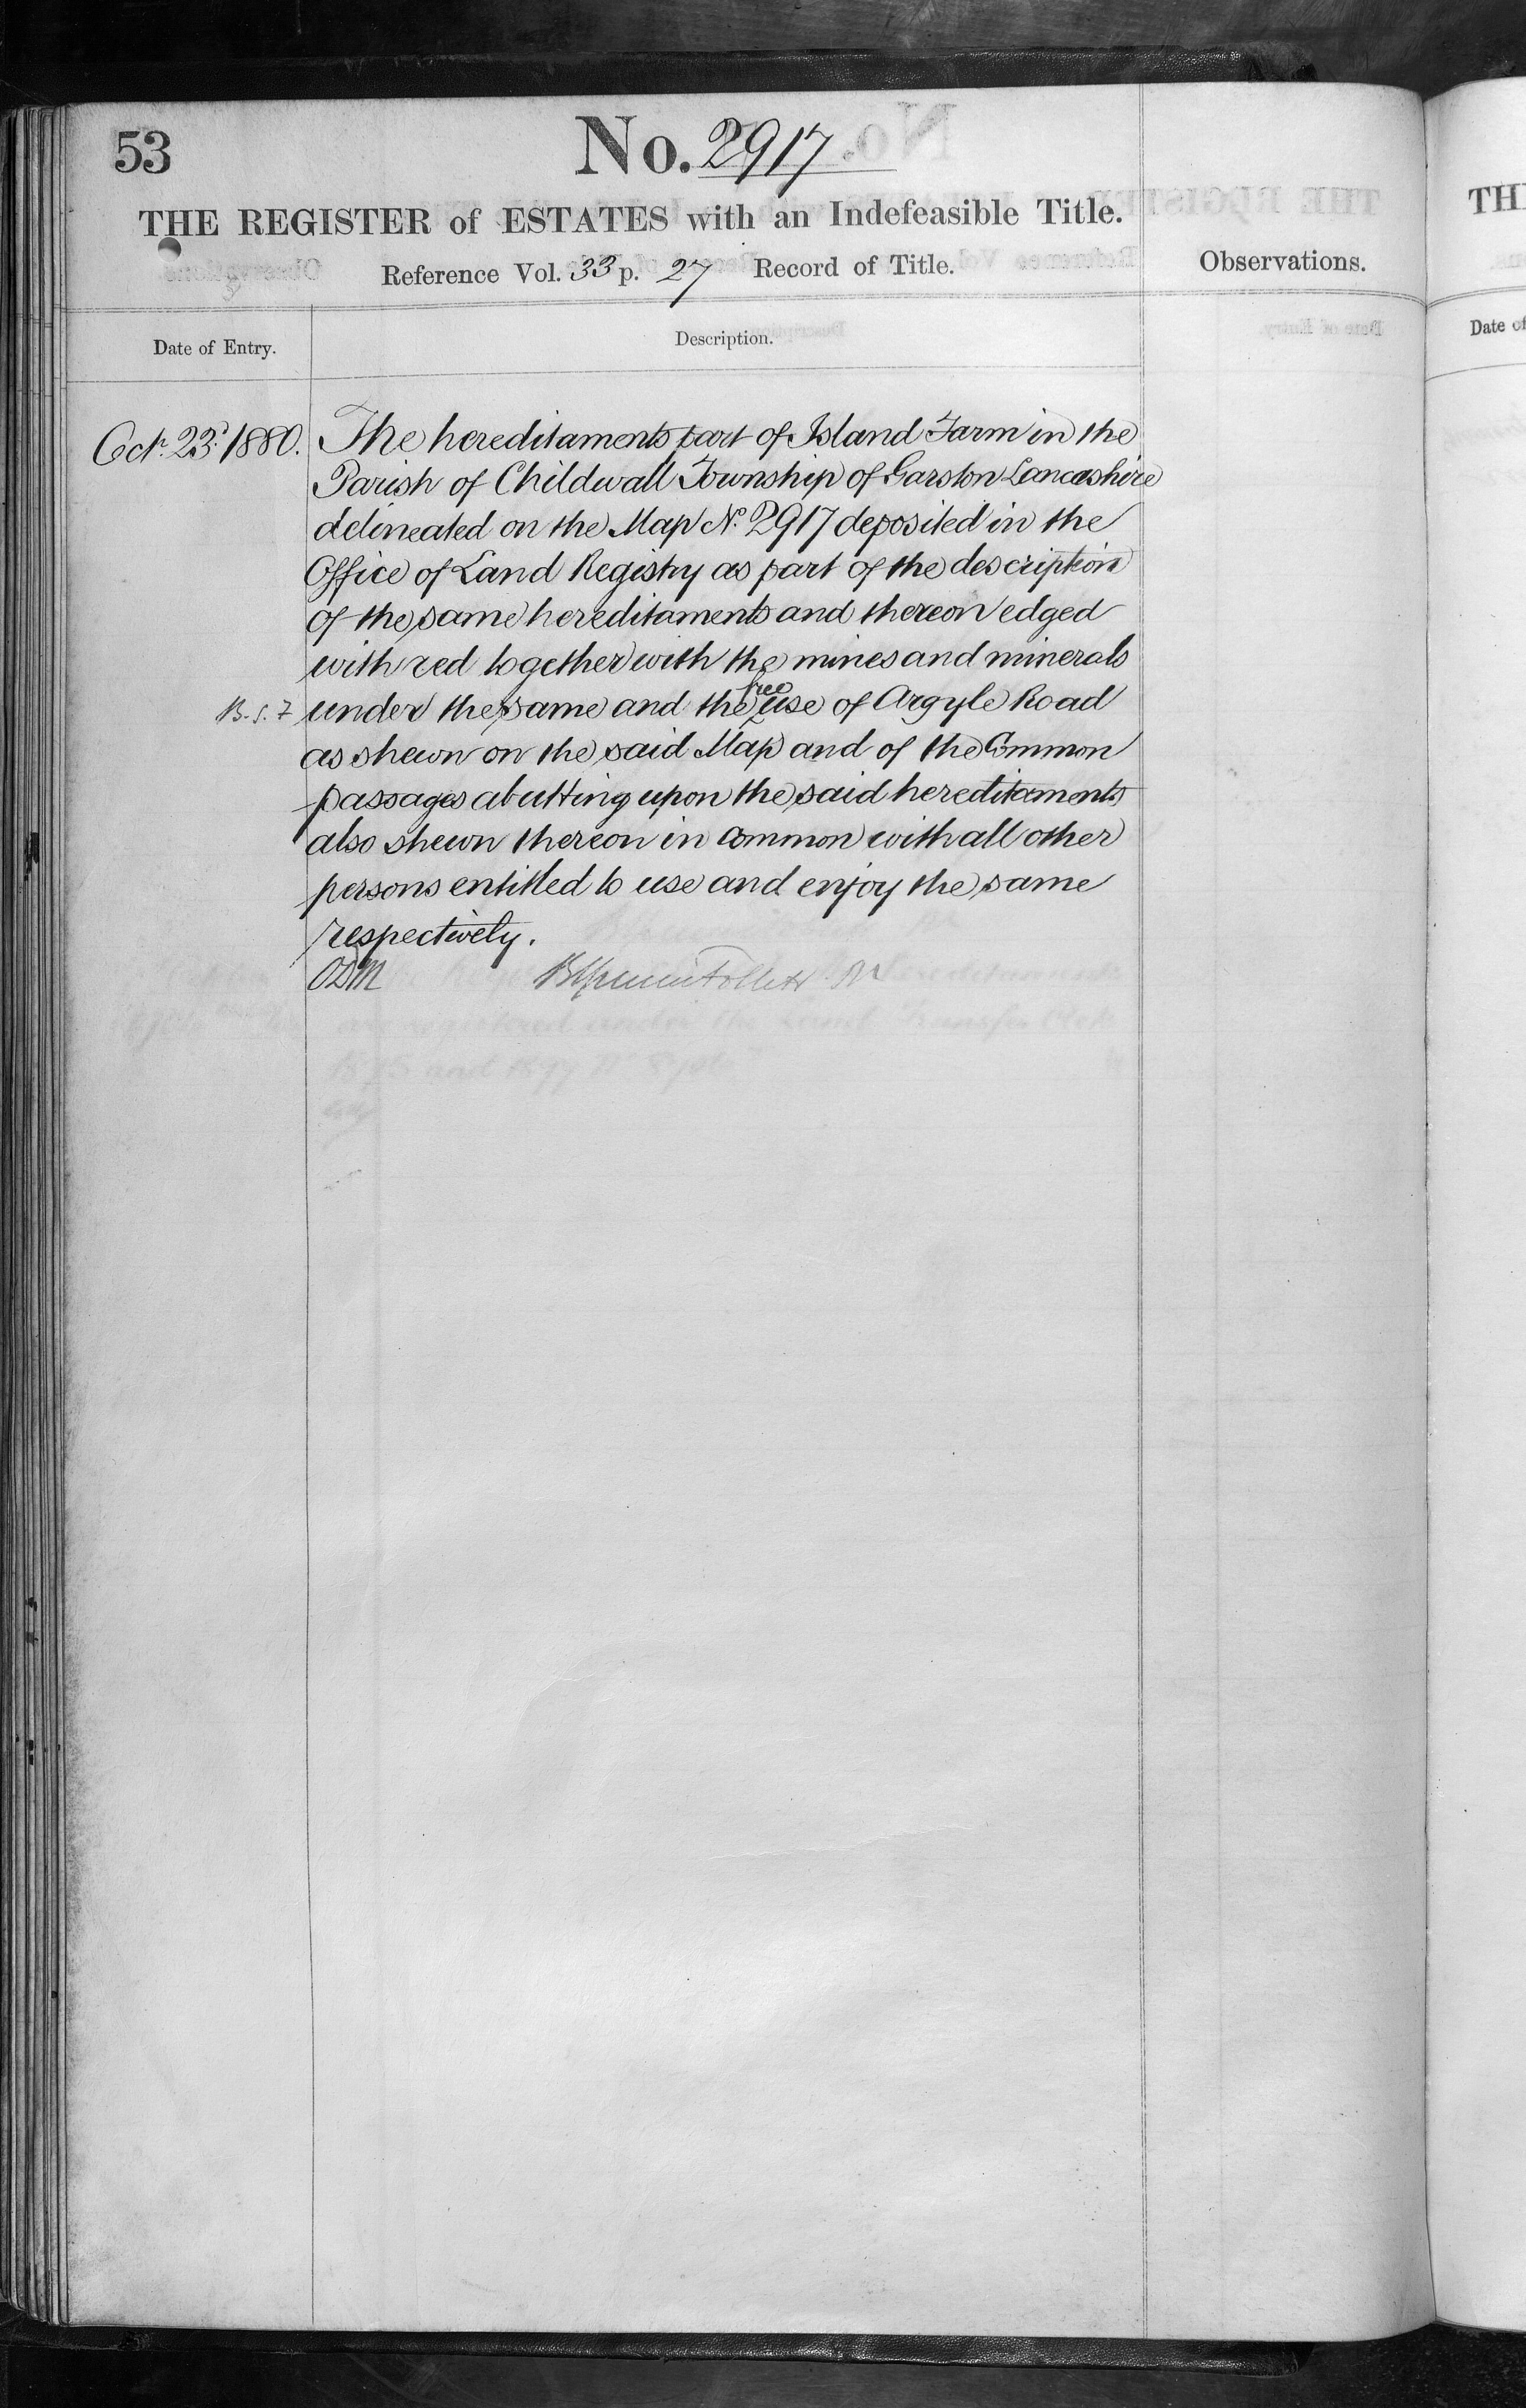 53
No. 2917
THE REGISTER of ESTATES with an Indefeasible Title.
Reference Vol. 33 p. 27 Record of Title.
Observations.
Date of Entry.
Description.
Oct. 23rd 1880.
The hereditaments part of Island Farm in the
Parish of Childwall Township of Garston Lancashire
delineated on the Map No. 2917 deposited in the
Office of Land Registry as part of the description
of the same hereditaments and thereon edged
with red together with the mines and minerals
B.S.7 under the same and the free use of Argyle Road
as shewn on the said Map and of the Common
passages abutting upon the said hereditaments
also shewn thereon in common with all other
persons entitled to use and enjoy the same
respectively.
ODM Follett
TH
Date of